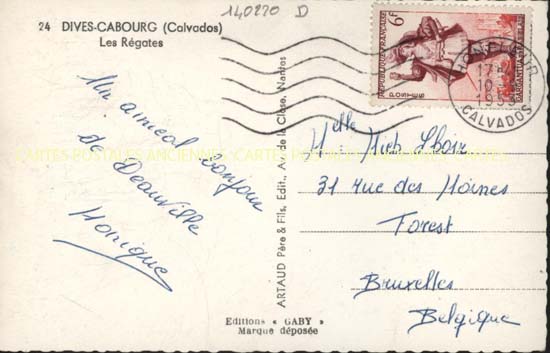 140270 D
24 DIVES-CABOURG (Calvados)
Les Régates
6F
REPUBLIQUE FRANÇAISE
POSTES
HONFLEUR
17
10
CALVADOS
Un amical bonjour
de Deauville
Monique
ARTAUD Père & Fils, Edit., Av. de la Close, Nantes
CARTES POSTALES ANCIENNES
Melle
31 rue des Moines
Forest
Bruxelles
Belgique
Editions « GABY »
Marque déposée